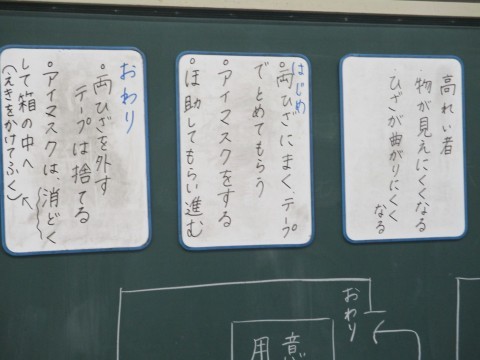 高れい者
・物が見えにくくなる
・ひざが曲がりにくく
なる
はじめ
・両ひざにまく・テープ
でとめてもらう
・アイマスクをする
・ほ助してもらい進む
おわり
・両ひざを外す
テープは捨てる
・アイマスクは、消どく
して箱の中へ
(えきをかけてふく)
おわり
用意